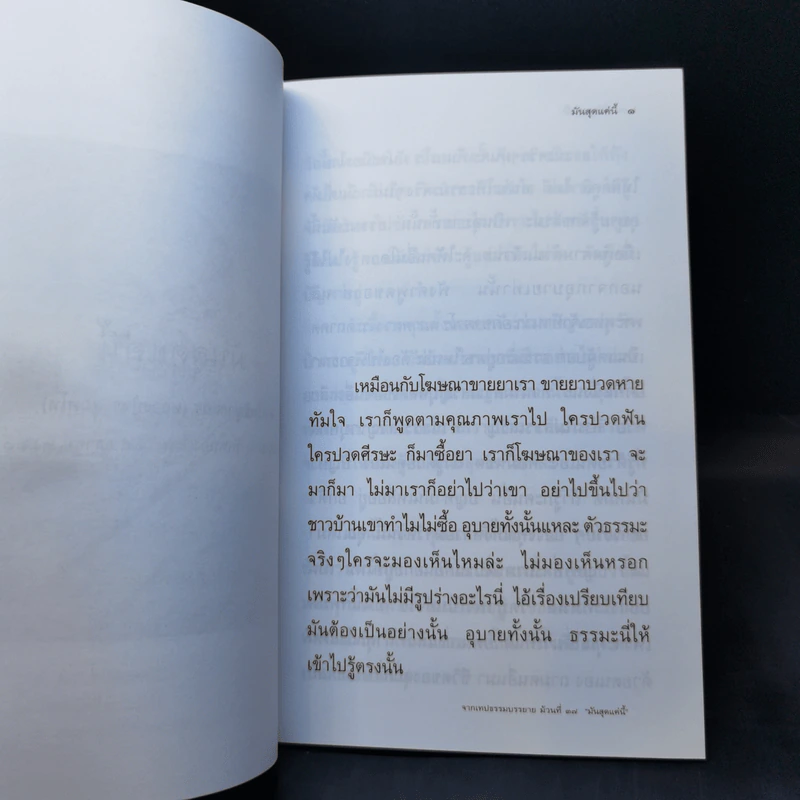 มันสุดแค่นี้ ๑
เหมือนกับโฆษณาขายยาเรา ขายยาบวดหาย
ทัมใจ เราก็พูดตามคุณภาพเราไป ใครปวดฟัน
ใครปวดศีรษะ ก็มาซื้อยา เราก็โฆษณาของเรา จะ
มาก็มา ไม่มาเราก็อย่าไปว่าเขา อย่าไปขึ้นไปว่า
ชาวบ้านเขาทำไมไม่ซื้อ อุบายทั้งนั้นแหละ ตัวธรรมะ
จริงๆใครจะมองเห็นไหมล่ะ ไม่มองเห็นหรอก
เพราะว่ามันไม่มีรูปร่างอะไรนี่ ไอ้เรื่องเปรียบเทียบ
มันต้องเป็นอย่างนั้น อุบายทั้งนั้น ธรรมะนี่ให้
เข้าไปรู้ตรงนั้น
จากเทปธรรมบรรยาย ม้วนที่ ๑๗ "มันสุดแค่นี้"